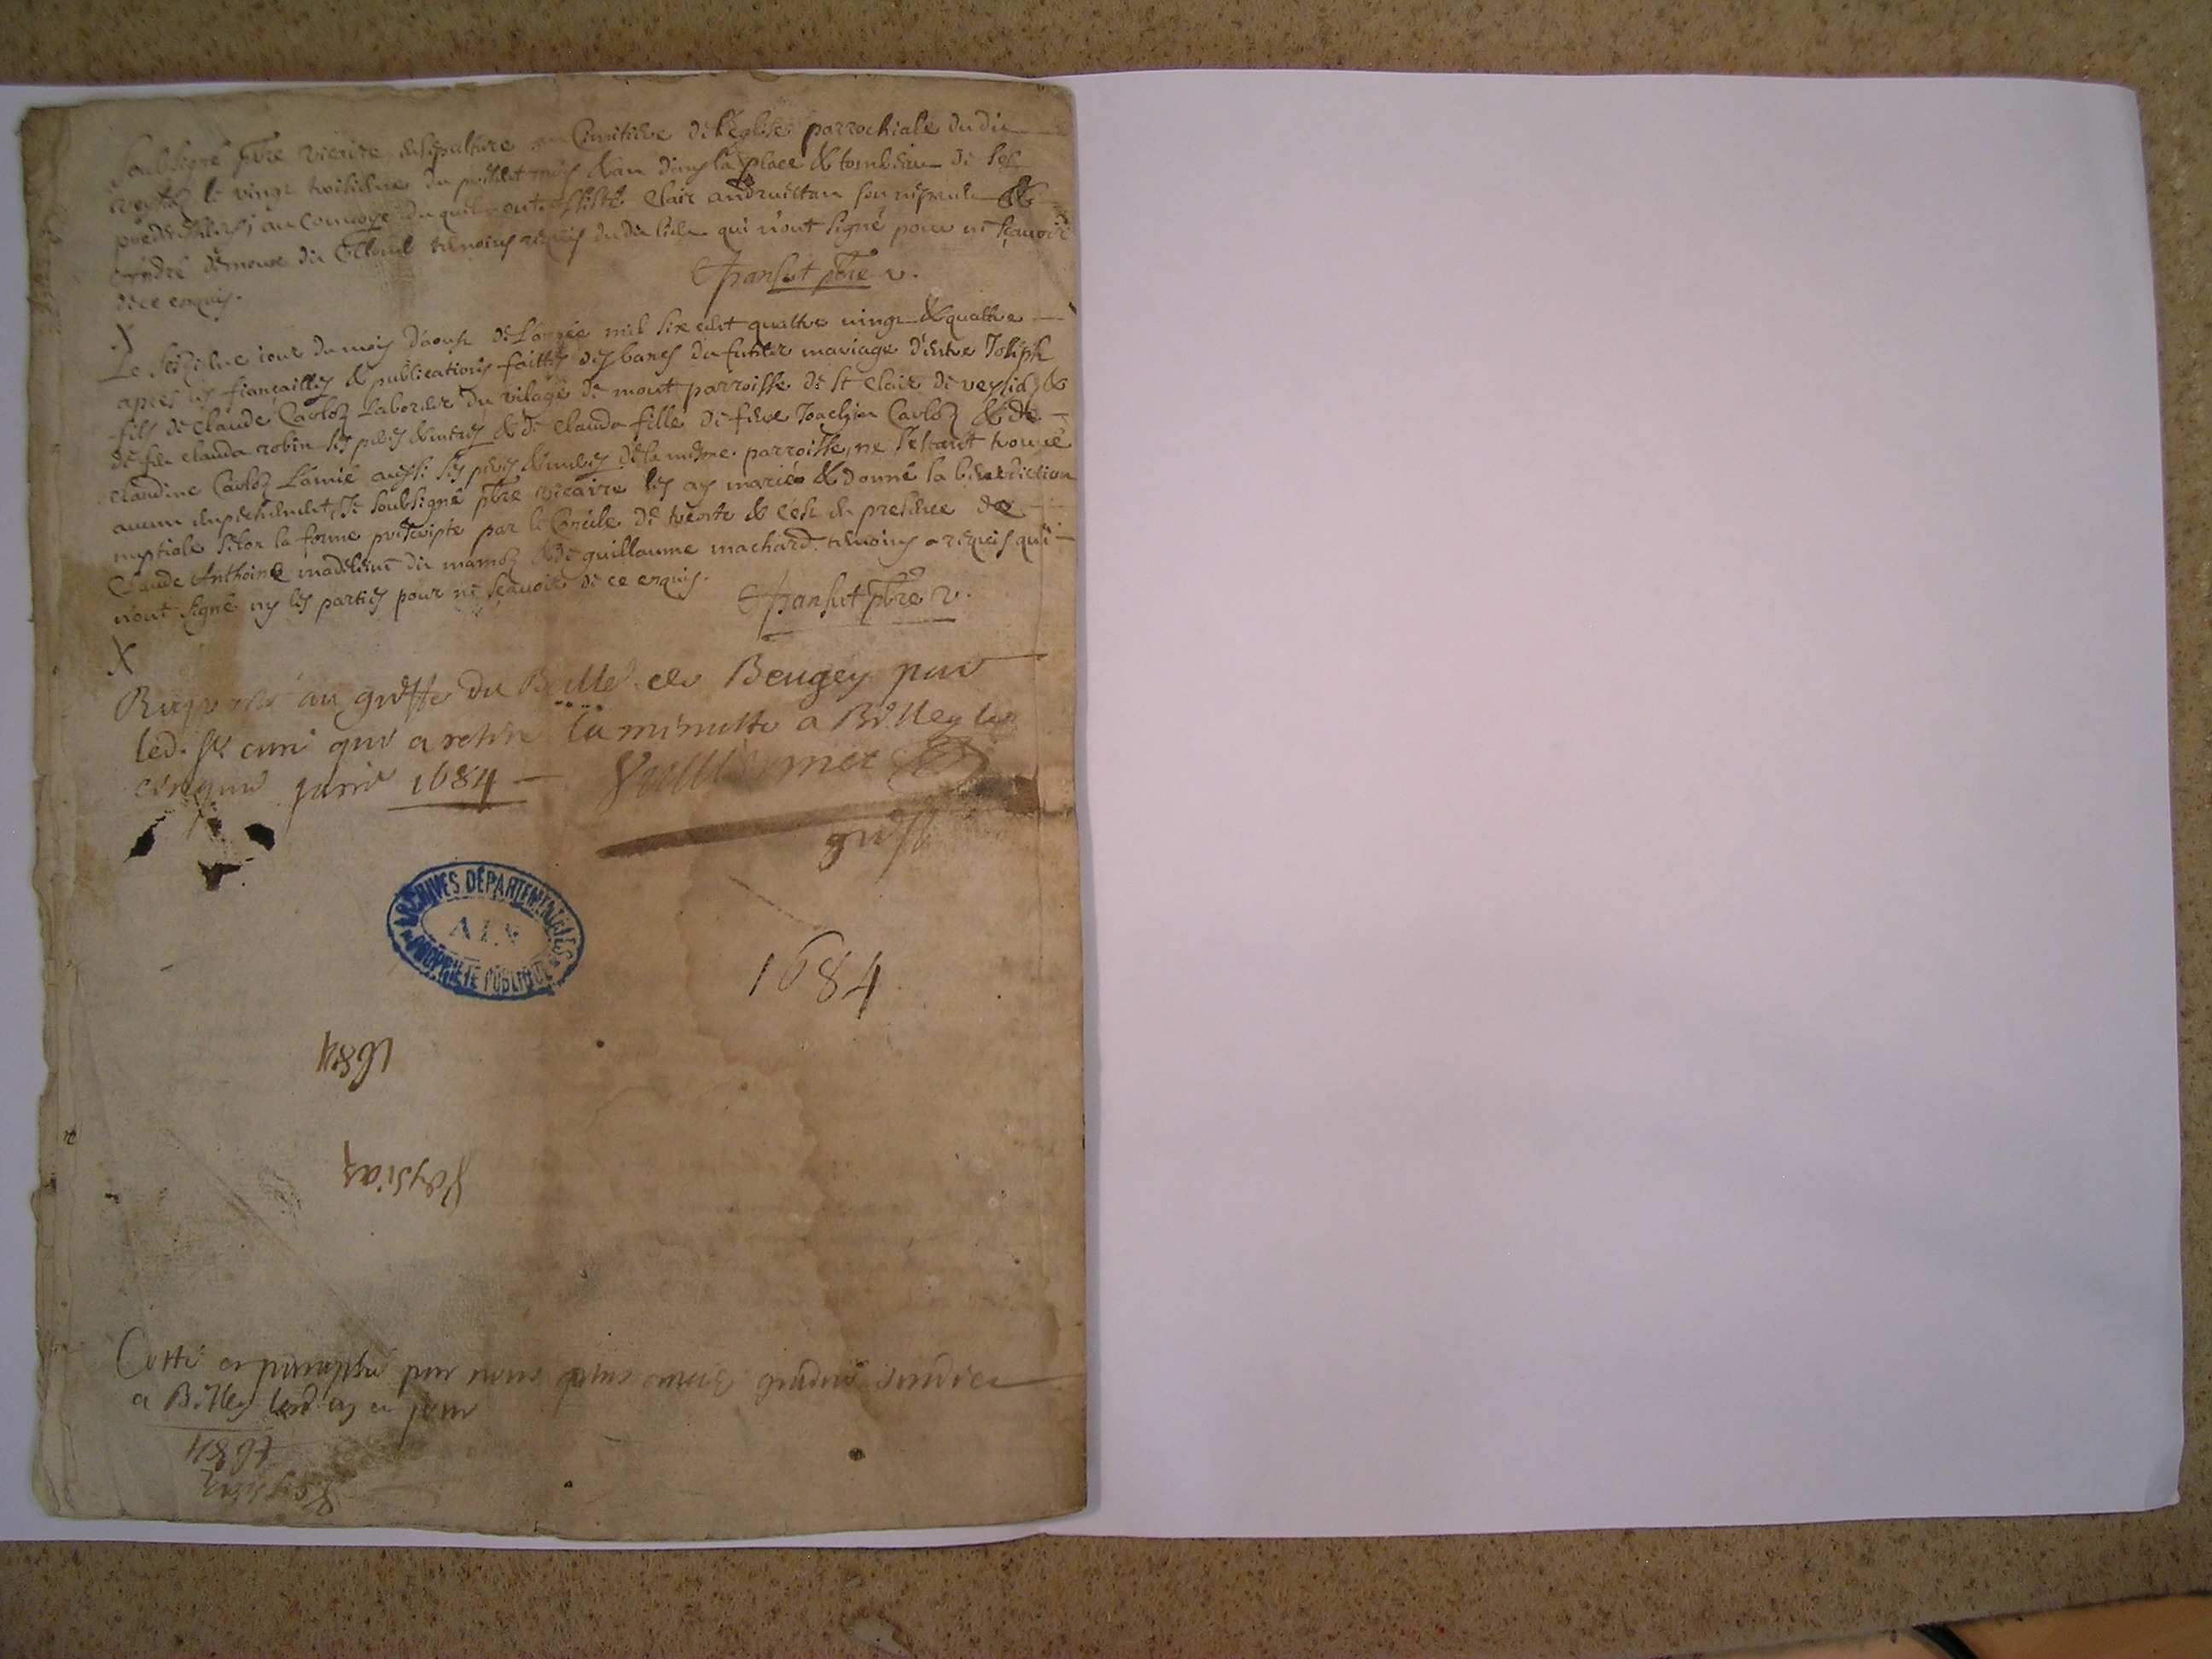 soubsigné pbre vicaire ensepulturé au Cimitiere de l'eglise parrochiale du dit
veysiaz le vingt troisieme du present mois & an dans la place & tombeau de ses
predecesseurs, au convoye duquel ont assisté Clair andruettan son nepveu &
André demoux du tilleul temoins requis dudit lieu qui n'ont signé pour ne sçavoir
de ce enquis.
pbre v.
X
Le seizieme iour du mois d'aoust de L'année mil six cent quattre vingt & quattre
apres les fiançailles & publications faittes des bancs du futur mariage d'entre Joseph
fils de Claude Carloz Laboreur du vilage de mont parroisse de st Clair de veysiaz &
de fue Clauda robin ses peres & meres & de Clauda fille de feue Joachim Carloz & de
Claudine Carloz L'amie aussi ses peres & meres de la mesme parroisse, ne s'estant trouvé
aucun empechement, Je soubsigné pbre vicaire les ay mariés & donné la benediction
nuptiale selon la forme prescripte par le Concile de trente & c'est en presence de
Claude Anthoine madelaine du mamoz & de guillaume machard temoins requis qui
n'ont signé ny les parties pour ne sçavoir de ce enquis.
pbre v.
X
au greffe du Baille de Beugey par
led. sr curé qui a retiré la minutte a Belley le
cinquie 1684
greff
ARCHIVES DÉPARTEMENTALES
AIN
PROPRIÉTÉ PUBLIQUE
1684
1684
Veysiaz
Cotté et paraphé par nous
a Belley
1684
Veysiaz